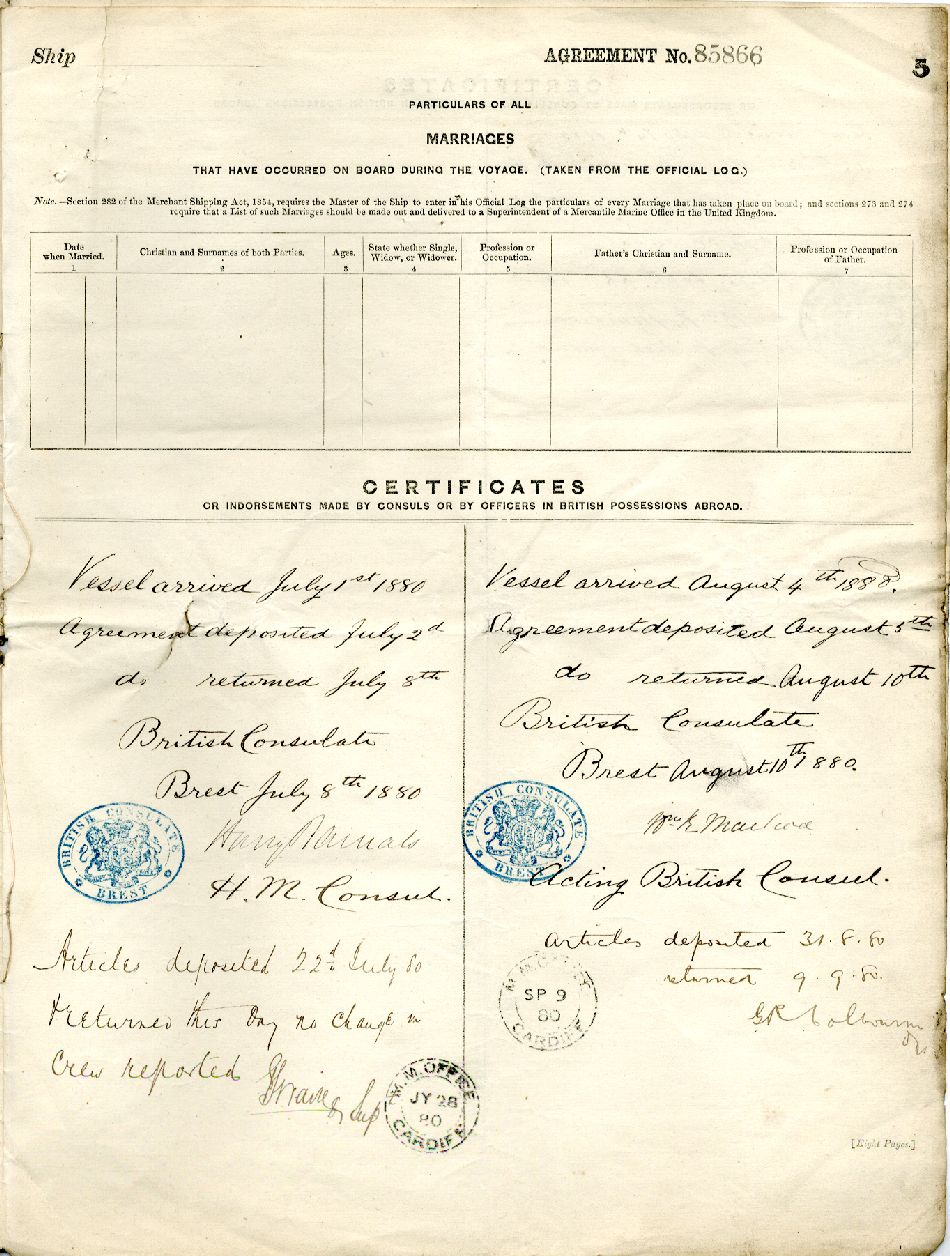 Ship
AGREEMENT No. 85866
5
PARTICULARS OF ALL
MARRIAGES
THAT HAVE OCCURRED ON BOARD DURING THE VOYAGE. (TAKEN FROM THE OFFICIAL LOG.)
Note.—Section 282 of the Merchant Shipping Act, 1854, requires the Master of the Ship to enter in his Official Log the particulars of every Marriage that has taken place on board; and sections 273 and 274
require that a List of such Marriages should be made out and delivered to a Superintendent of a Mercantile Marine Office in the United Kingdom.
Date when Married. 1
Christian and Surnames of both Parties. 2
Ages. 3
State whether Single, Widow, or Widower. 4
Profession or Occupation. 5
Father's Christian and Surname. 6
Profession or Occupation of Father. 7
CERTIFICATES
OR INDORSEMENTS MADE BY CONSULS OR BY OFFICERS IN BRITISH POSSESSIONS ABROAD.
Vessel arrived July 1st 1880
Agreement deposited July 2d
do returned July 8th
British Consulate
Brest July 8th 1880
BRITISH CONSULATE BREST
Harry
H. M. Consul.
Articles deposited 22d July 80
returned this day no change in
Crew reported
M.M. OFFICE
JY 28
80
CARDIFF
Vessel arrived August 4th 1880.
Agreement deposited August 5th
do returned August 10th
British Consulate
Brest August 10th 1880.
BRITISH CONSULATE BREST
Wm
Acting British Consul.
Articles deposited 31.8.80
returned 9.9.80
M.M. OFFICE
SP 9
80
CARDIFF
[Eight Pages.]